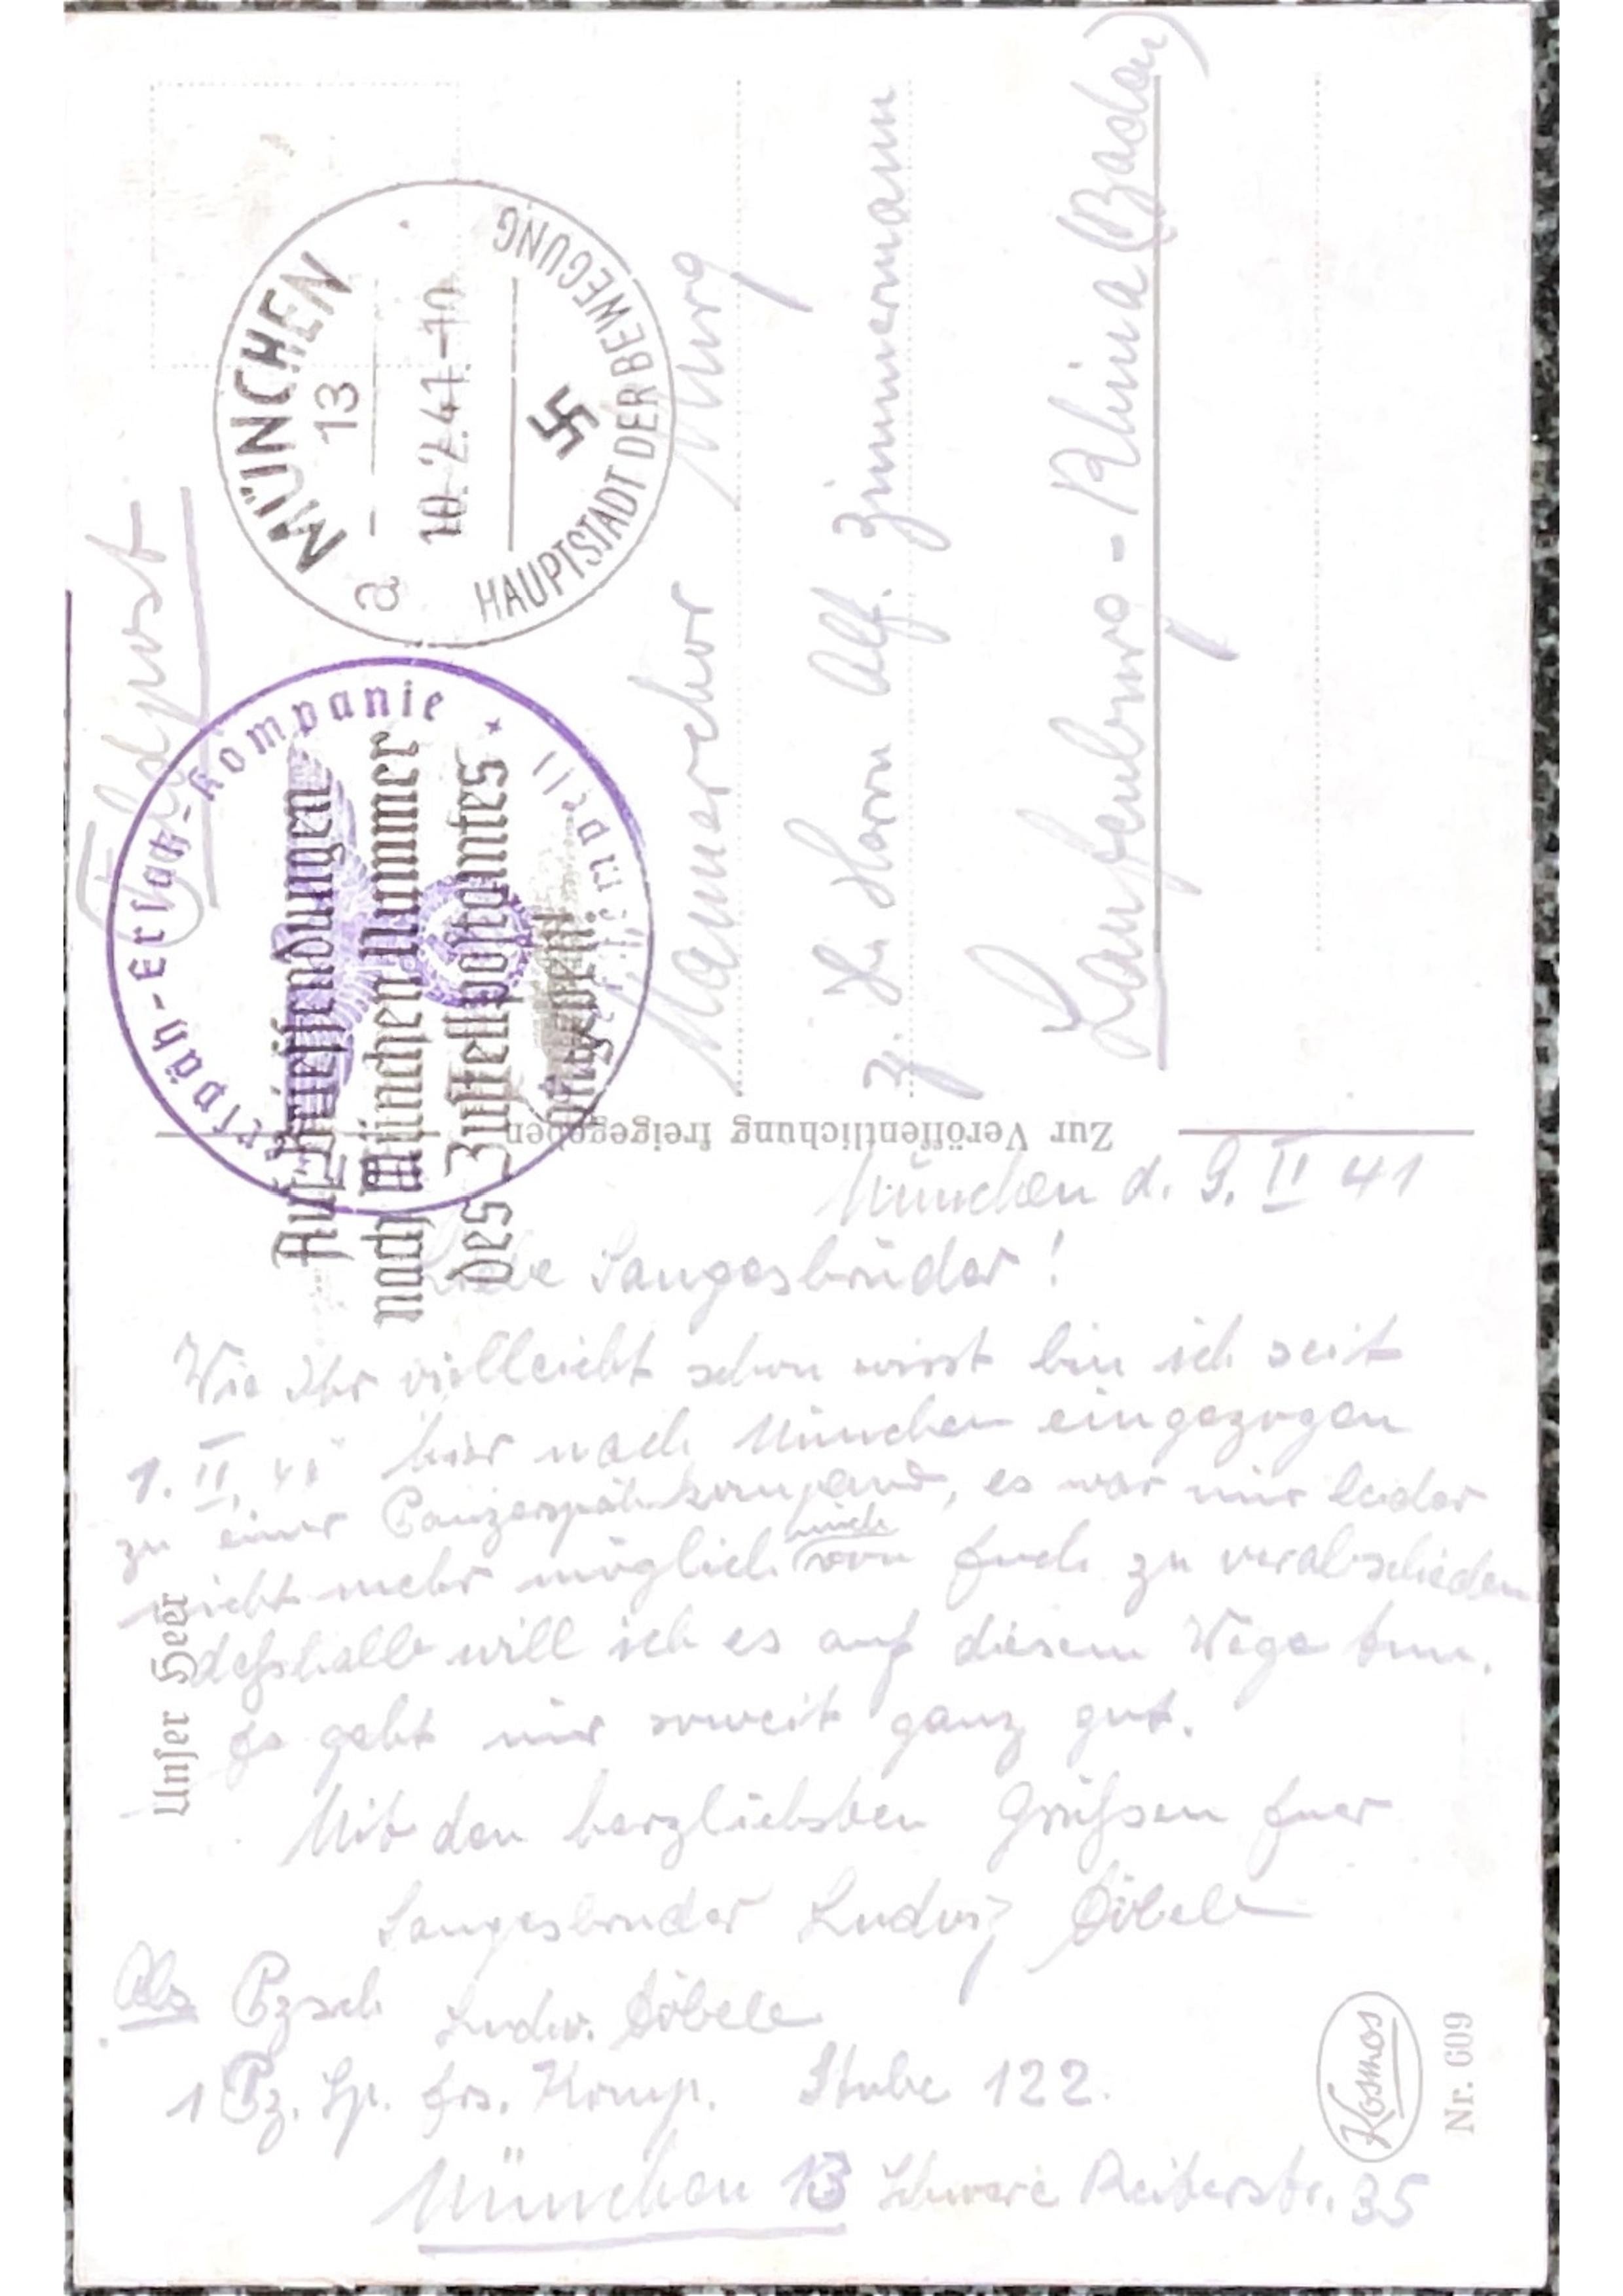 Feldpost
MÜNCHEN
13
a
10.2.41.-10
HAUPTSTADT DER BEWEGUNG
Panzerspäh-Ersatz-Kompanie
Auf Briefsendungen
nach München Nummer
des Zustellpostamtes
angeben!
Männerchor Murg
z. Hd. Herrn Alf. Zimmermann
Laufenburg - Rhina (Baden)
Zur Veröffentlichung freigegeben
München d. 9. II 41
Liebe Sangesbrüder!
Wie Ihr vielleicht schon wisst bin ich seit
1. II. 41 hier nach München eingezogen
zu einer Panzerspähkompanie, es war mir leider
nicht mehr möglich mich von Euch zu verabschieden
deshalb will ich es auf diesem Wege tun.
Es geht mir soweit ganz gut.
Mit den herzlichsten Grüßen Euer
Sangesbruder Ludwig Döbele
Abs Pzsch Ludw. Döbele
1 Pz. Sp. Ers. Komp. Stube 122.
München 13 Schwere Reiterstr. 35
Unser Heer
Kosmos
Nr. 609